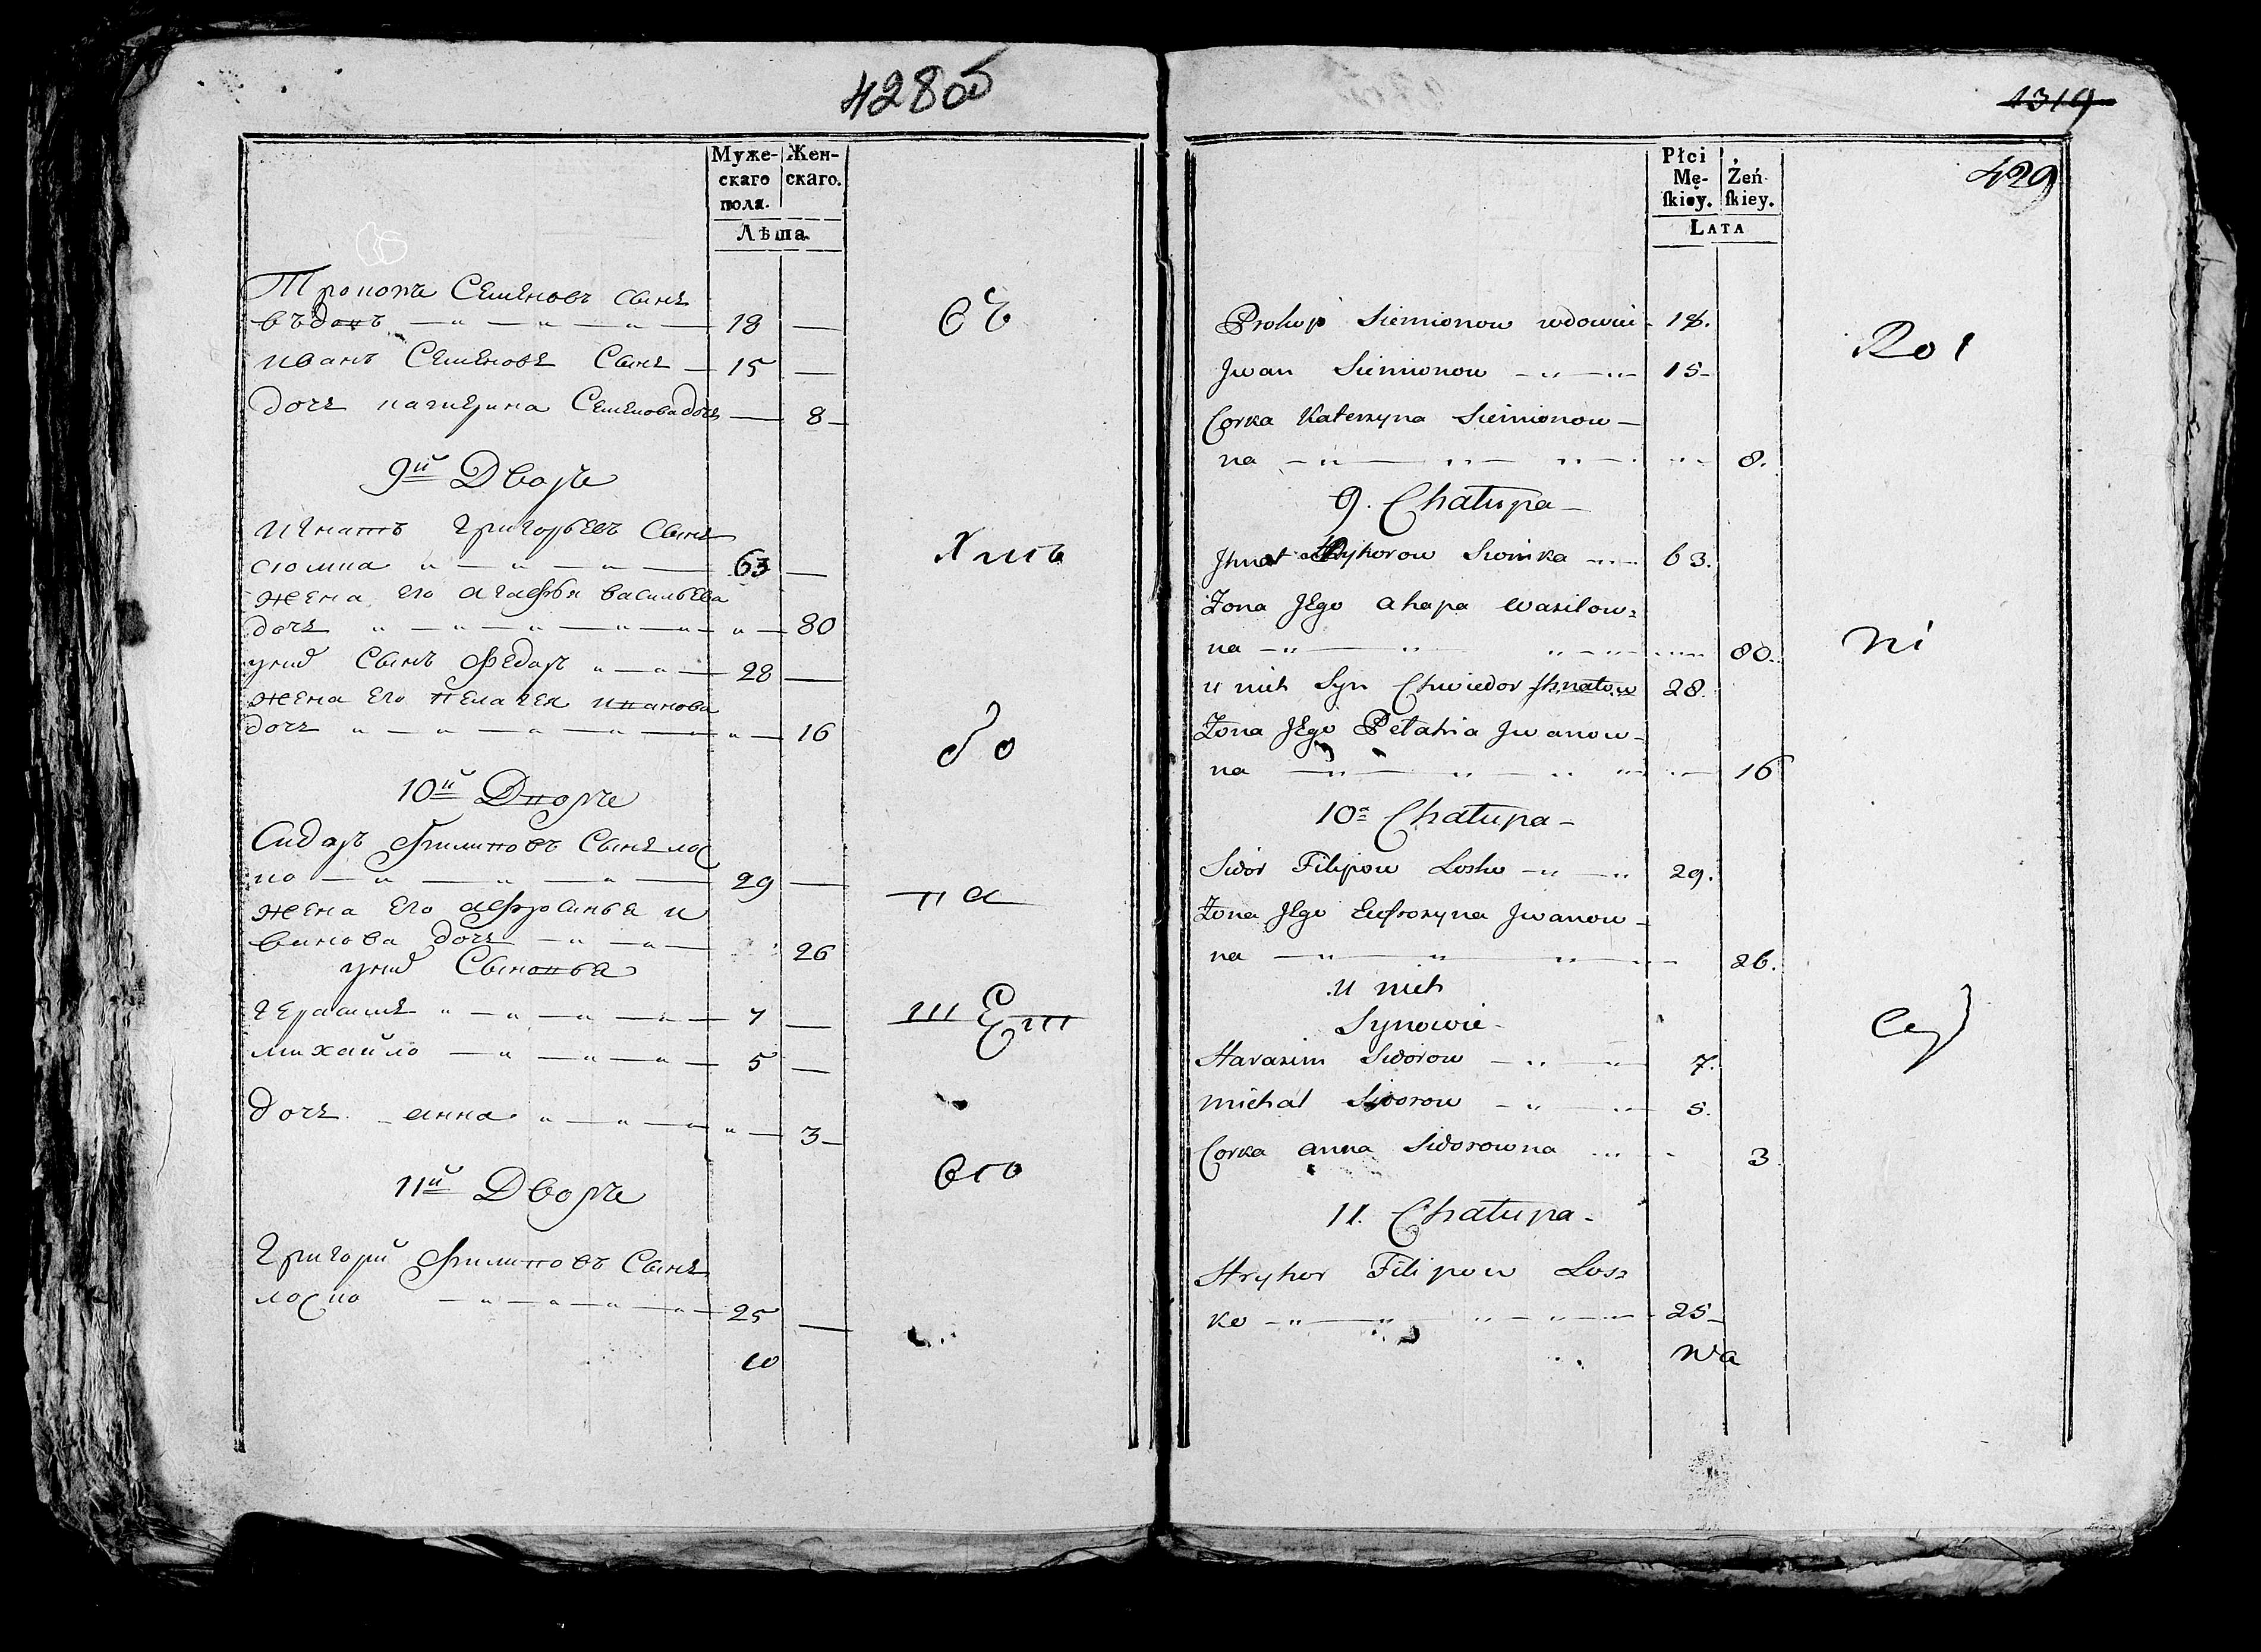 428об
Муже-
скаго
поля.
Жен-
скаго.
Лѣта
Прокопъ Семеновъ сынъ
въдовъ 18
иванъ Семеновъ Сынъ 15
дочь катерина Семенова дочь 8
9й Дворъ
Игнатъ григорьевъ Сынъ
сіомка 63
жена его агафья васильева
дочь 80
унихъ Сынъ Федоръ 28
жена его пелагея иванова
дочь 16
10й Дворъ
Сидоръ Филиповъ Сынъ лос
ко 29
жена его афросинья и
ванова дочь 26
унихъ Сыновья
герасимъ 7
михайло 5
дочь анна 3
11й Дворъ
григорий Филиповъ Сынъ
лоско 25
10
съ
хмъ
до
па
шт
его
1319
429
Płci
Mę-
ſkiey.
Żeń
ſkiey.
Lata
Prokop Siemionow wdowiec 18.
Jwan Siemionow 15
Corka Katerzyna Siemionow
na 8.
9. Chałupa
Jhnat Hrykorow Siomka 63.
Żona Jego ahapa wasilow
na 80.
u nich Syn Chwiedor Jhnatow 28.
Żona Jego Pelahia Jwanow
na 16
10a Chałupa
Sidor Filipow Losko 29.
Żona Jego Eufrozyna Jwanow
na 26.
u nich
Synowie
Harasim Sidorow 7.
michał Sidorow 5.
Corka anna Sidorowna 3
11. Chałupa
Hryhor Filipow Los
ko 25
wa
Ro
ni